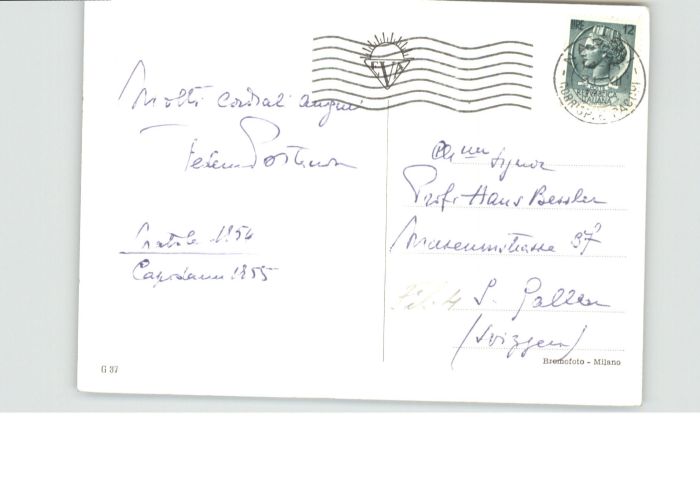 Molti cordiali auguri
Natale 1954
Capodanno 1955
G 37
LIRE 12
REPUBBLICA
ITALIANA
Ch.mo Signor
Prof. Hans Bessler
Museumstrasse 37
S. Gallen
(Svizzera)
Bromofoto - Milano